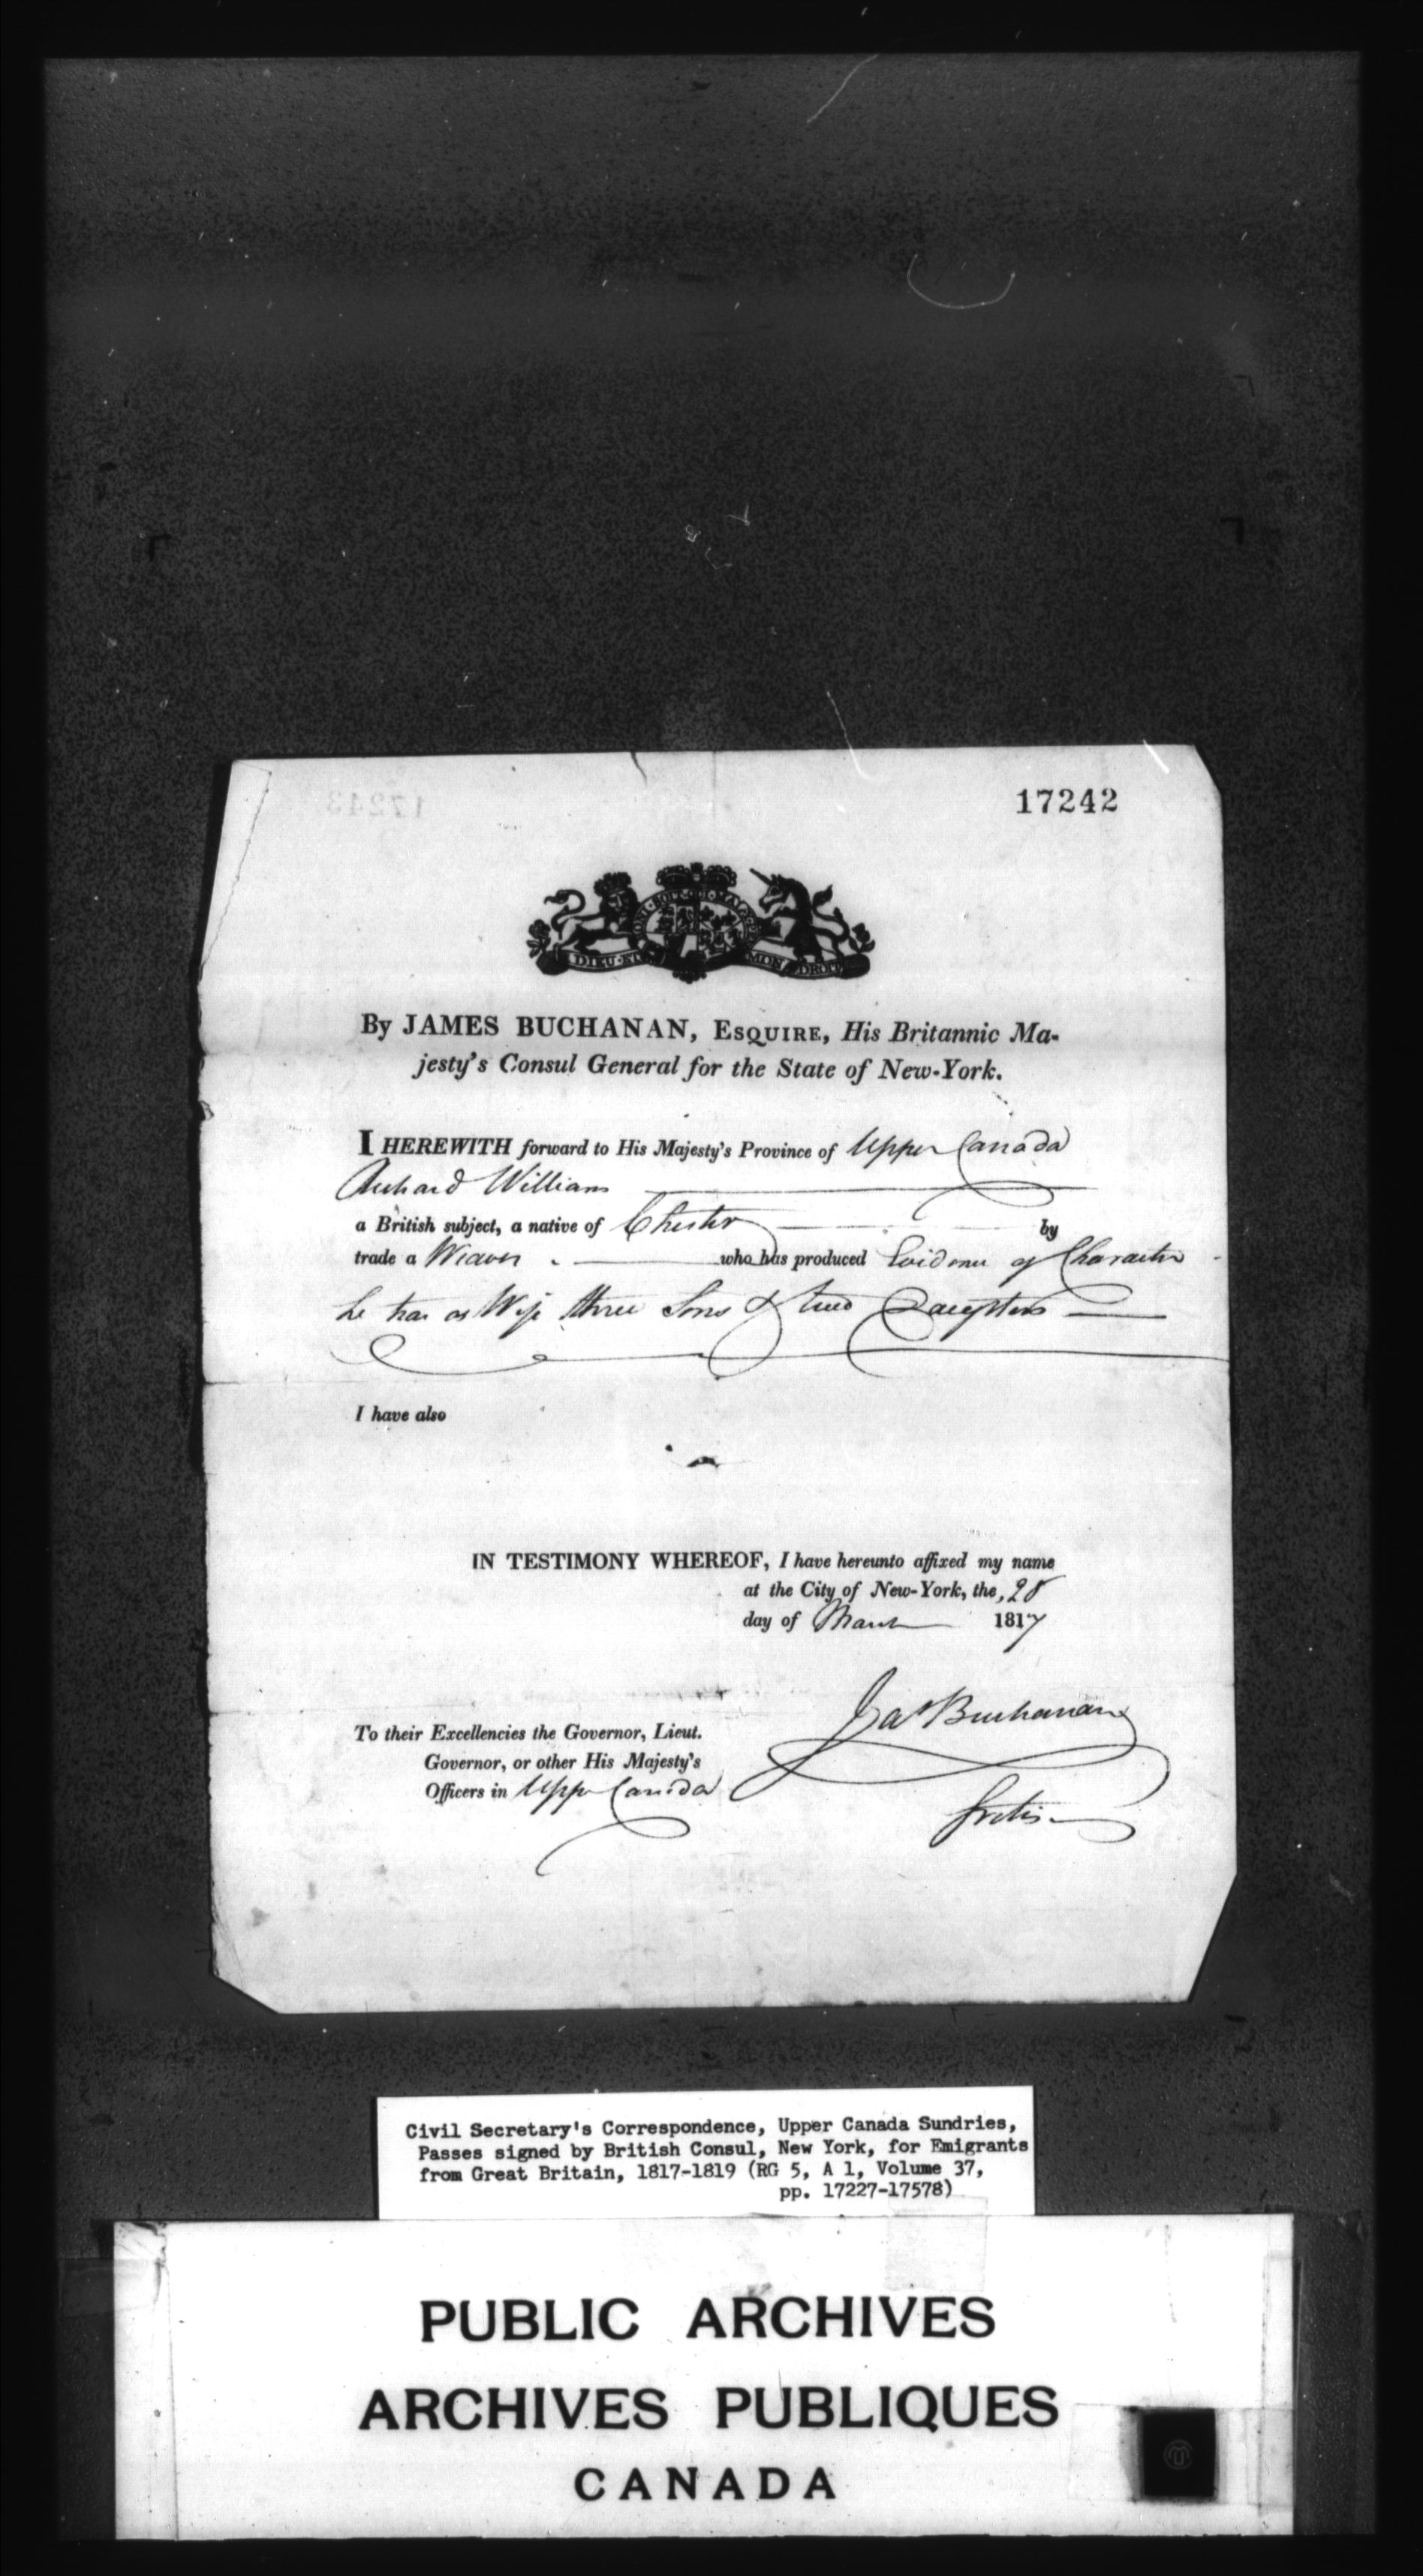 17242
HONI·SOIT·QUI·MAL·
DIEU·ET MON DROIT
By JAMES BUCHANAN, ESQUIRE, His Britannic Ma-
jesty's Consul General for the State of New-York.
I HEREWITH forward to His Majesty's Province of Upper Canada
Richard Williams
a British subject, a native of Chester by
trade a Weaver who has produced Evidence of Character
he has a Wife three Sons & two Daughters
I have also
IN TESTIMONY WHEREOF, I have hereunto affixed my name
at the City of New-York, the, 28
day of March 1817
Jas Buchanan
To their Excellencies the Governor, Lieut.
Governor, or other His Majesty's
Officers in Upper Canada
Gratis
Civil Secretary's Correspondence, Upper Canada Sundries,
Passes signed by British Consul, New York, for Emigrants
from Great Britain, 1817-1819 (RG 5, A 1, Volume 37,
pp. 17227-17578)
PUBLIC ARCHIVES
ARCHIVES PUBLIQUES
CANADA